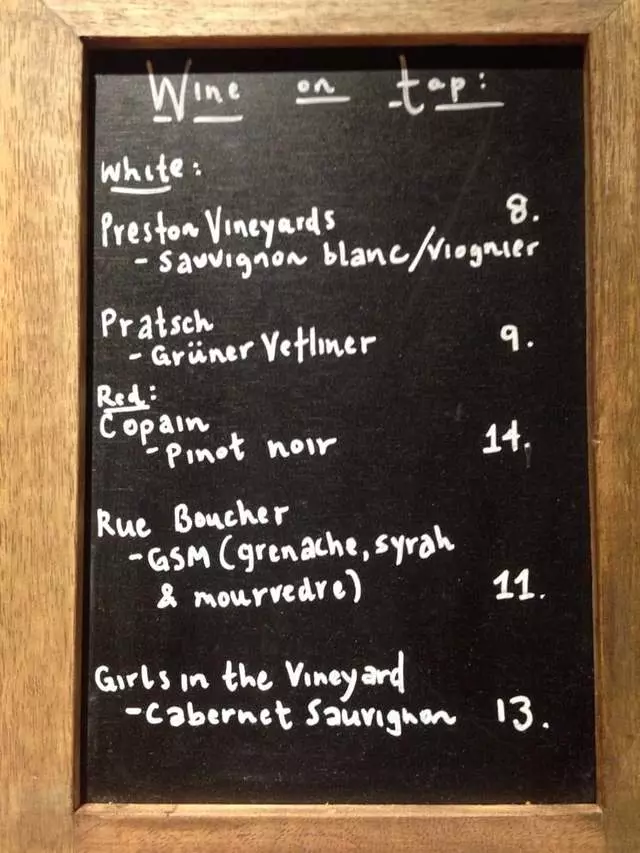 Wine on tap:
White:
Preston Vineyards 8.
- Sauvignon blanc/Viognier
Pratsch
- Grüner Vetliner 9.
Red:
Copain
- Pinot noir 14.
Rue Boucher
- GSM (grenache, syrah
& mourvedre) 11.
Girls in the Vineyard
- Cabernet Sauvignon 13.